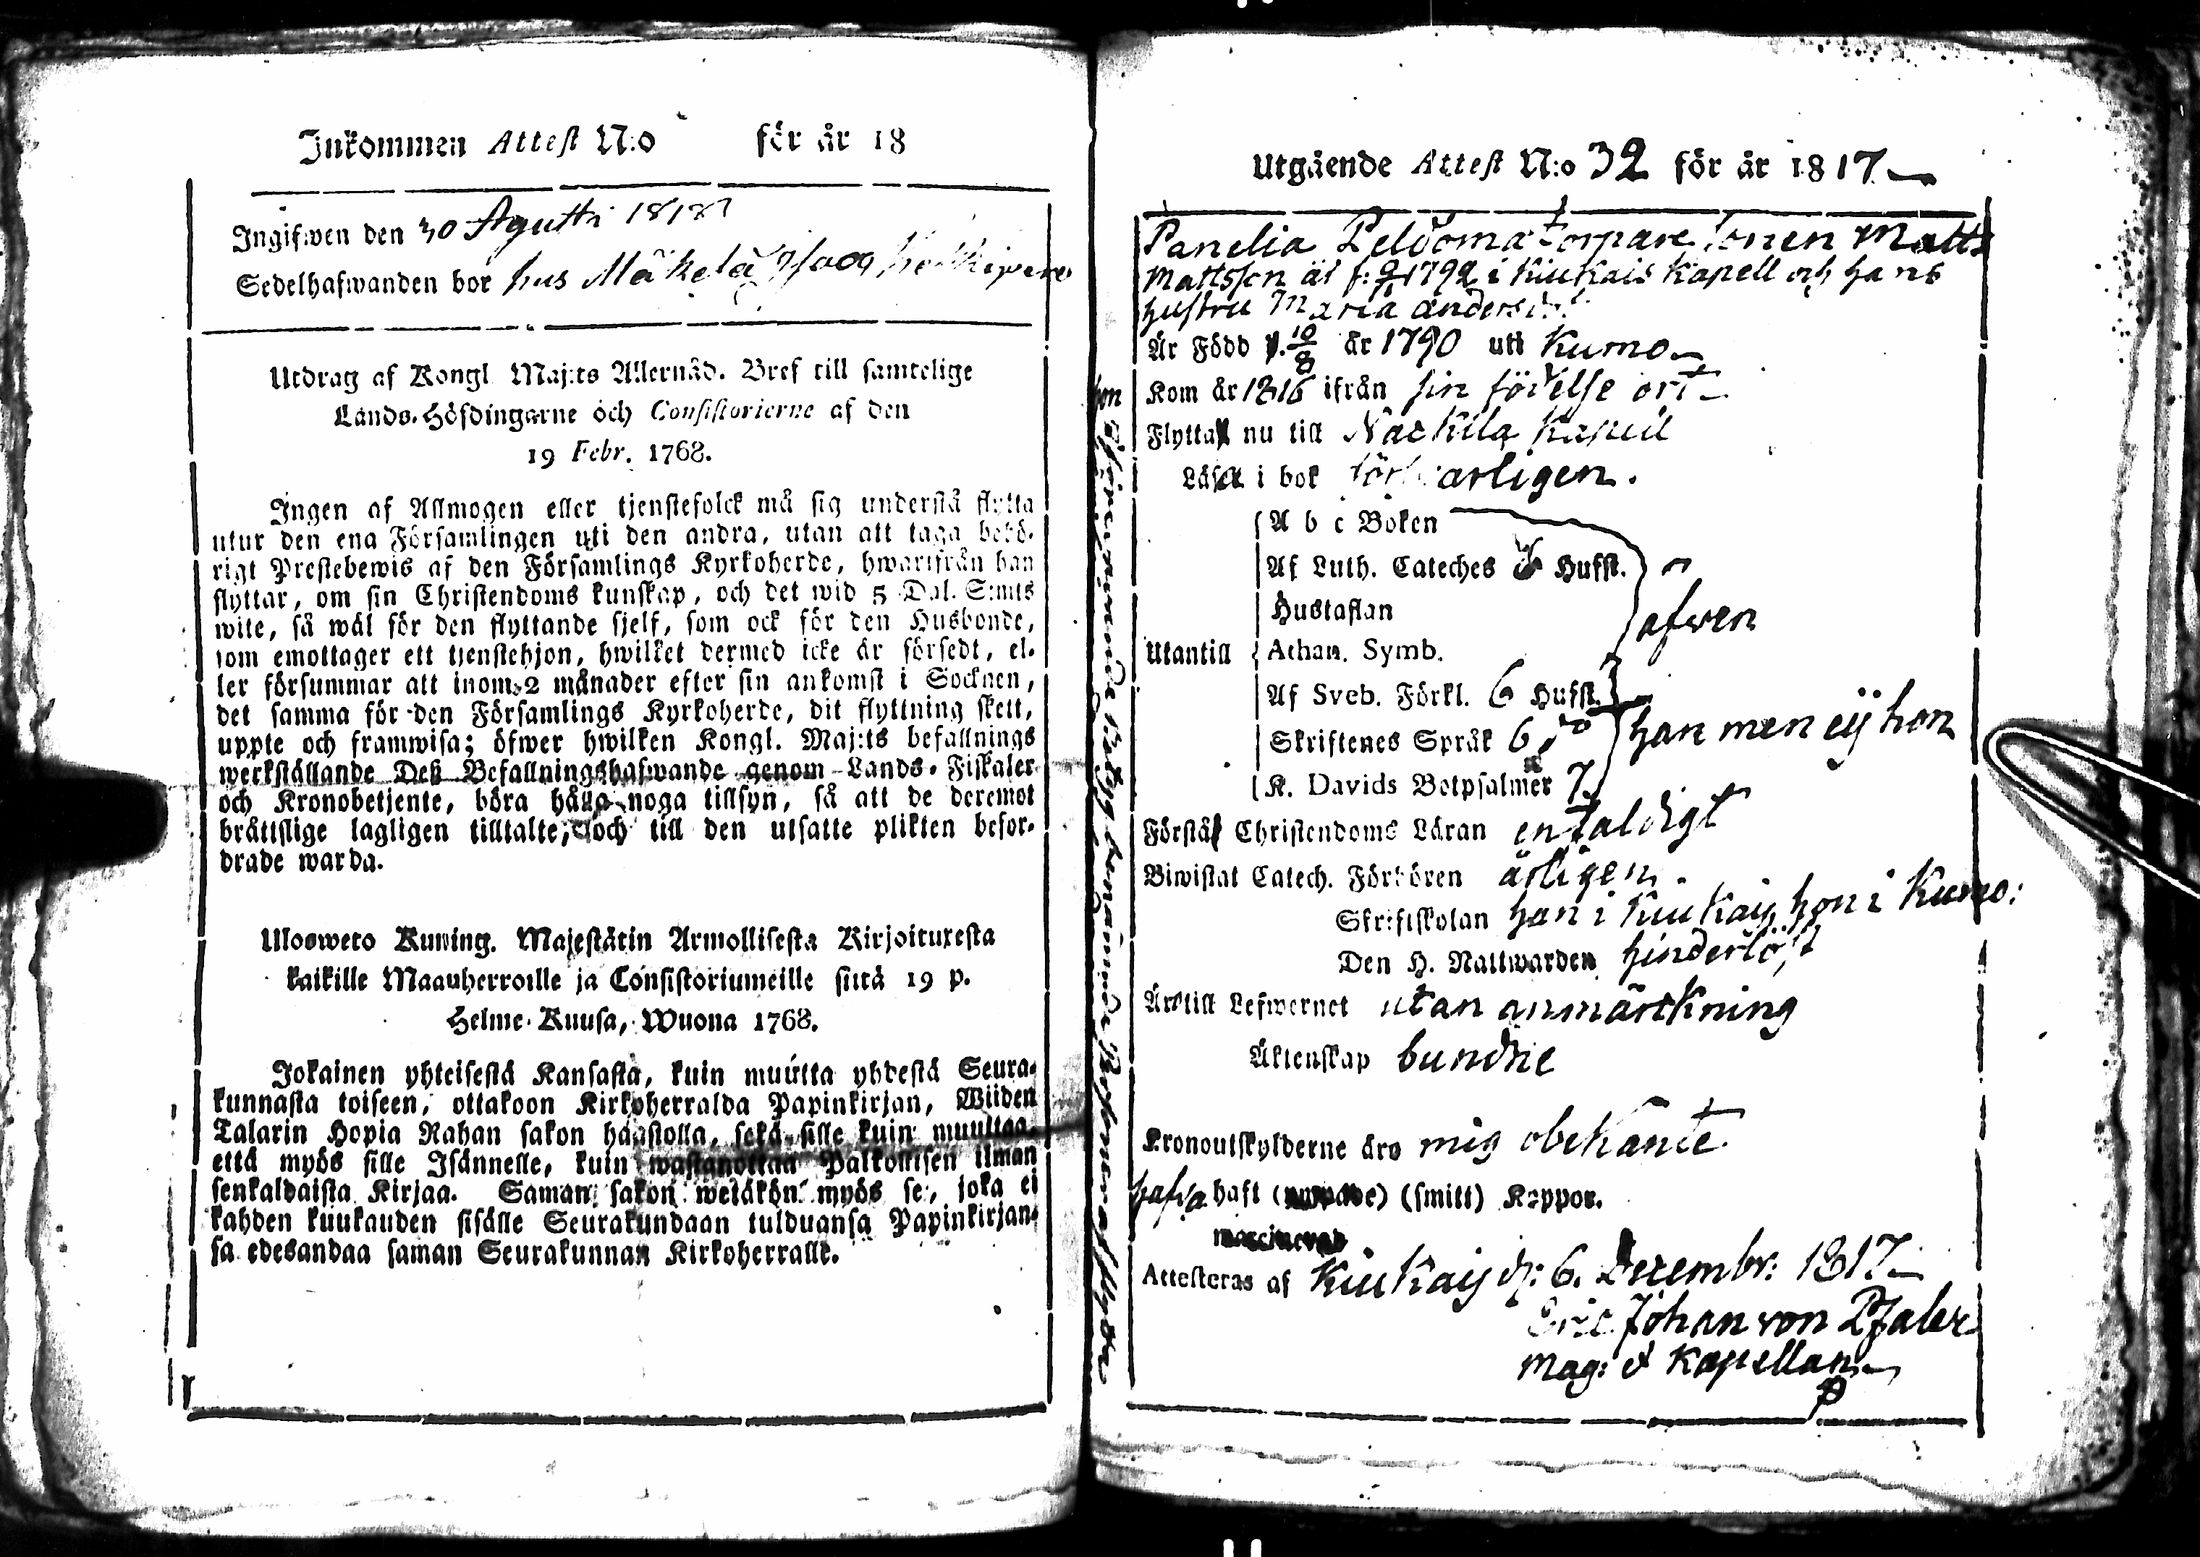 Inkommen Attest N:o för år 18
Ingifwen den 30 Agutti 1818
Sedelhafwanden bor hus Mäkelä
Utdrag af Kongl. Maj:ts Allernåd. Bref till samtelige
Lands-Höfdingarne och Consistorierne af den
19 Febr. 1768.
Ingen af Allmogen eller tjenstefolck må sig understå flytta
utur den ena Församlingen uti den andra, utan att taga behö-
rigt Prestebewis af den Församlings Kyrkoherde, hwarifrån han
flyttar, om sin Christendoms kunskap, och det wid 5 Dal. S:mts
wite, så wäl för den flyttande sjelf, som ock för den Husbonde,
som emottager ett tjenstehjon, hwilket dermed icke är försedt, el-
ler försummar att inom 2 månader efter sin ankomst i Socknen,
det samma för den Församlings Kyrkoherde, dit flyttning skett,
uppte och framwisa; öfwer hwilken Kongl. Maj:ts befallnings
werkställande Deß Befallningshafwande genom Lands-Fiskaler
och Kronobetjente, böra hålla noga tillsyn, så att de deremot
bråttslige lagligen tilltalte, och till den utsatte plikten befor-
drade warda.
Uloswero Kuning. Majestätin Armollisesta Kirjoituxesta
kaikille Maauherroille ja Consistoriumeille siitä 19 p.
Helme-Kuusa, Wuona 1768.
Jokainen yhteisestä Kansasta, kuin muutta yhdestä Seura-
kunnasta toiseen, ottakoon Kirkoherralda Papinkirjan, Wiiden
Talarin Hopia Rahan sakon haastolla, sekä sille kuin muuttaa,
että myös sille Isännelle, kuin wastanottaa Palkollisen ilman
senkaldaista Kirjaa. Saman sakon wetäkön myös se, joka ei
kahden kuukauden sisälle Seurakundaan tulduansa Papinkirjan-
sa edesandaa saman Seurakunnan Kirkoherralle.
Utgående Attest N:o 32 för år 1817
Panelia Peldoma torpare sonen Matts
Mattsson är f: 1792 i Kiukais Kapell och hans
hustru Maria Anders
Är Född d. 10/8 år 1790 uti Kumo
Kom år 1816 ifrån sin födelse ort
Flytta nu till Nackila Kapell
Läsa i bok försvarligen.
A b c Boken
Af Luth. Cateches Hufst.
Hustaflan
afwen
Utantill Athan. Symb.
Af Sveb. Förkl. 6 Hufst.
Skriftenes Språk 6 han men eij hon
K. Davids Botpsalmer 7.
Förstå Christendoms Läran enfaldigt
Biwistat Catech. Förhören årligen.
Skriftskolan han i Kiukais, hon i Kumo:
Den H. Nattwarden hinderlöst
Äro till Lefwernet utan anmärckning
Äktenskap bundne
Kronoutskylderne äro mig obekante
hafva haft (smitt) Koppor.
Attesteras af Kiukais d: 6. Decembr: 1817
Eric Johan von Pfaler
Mag: & Kapellan